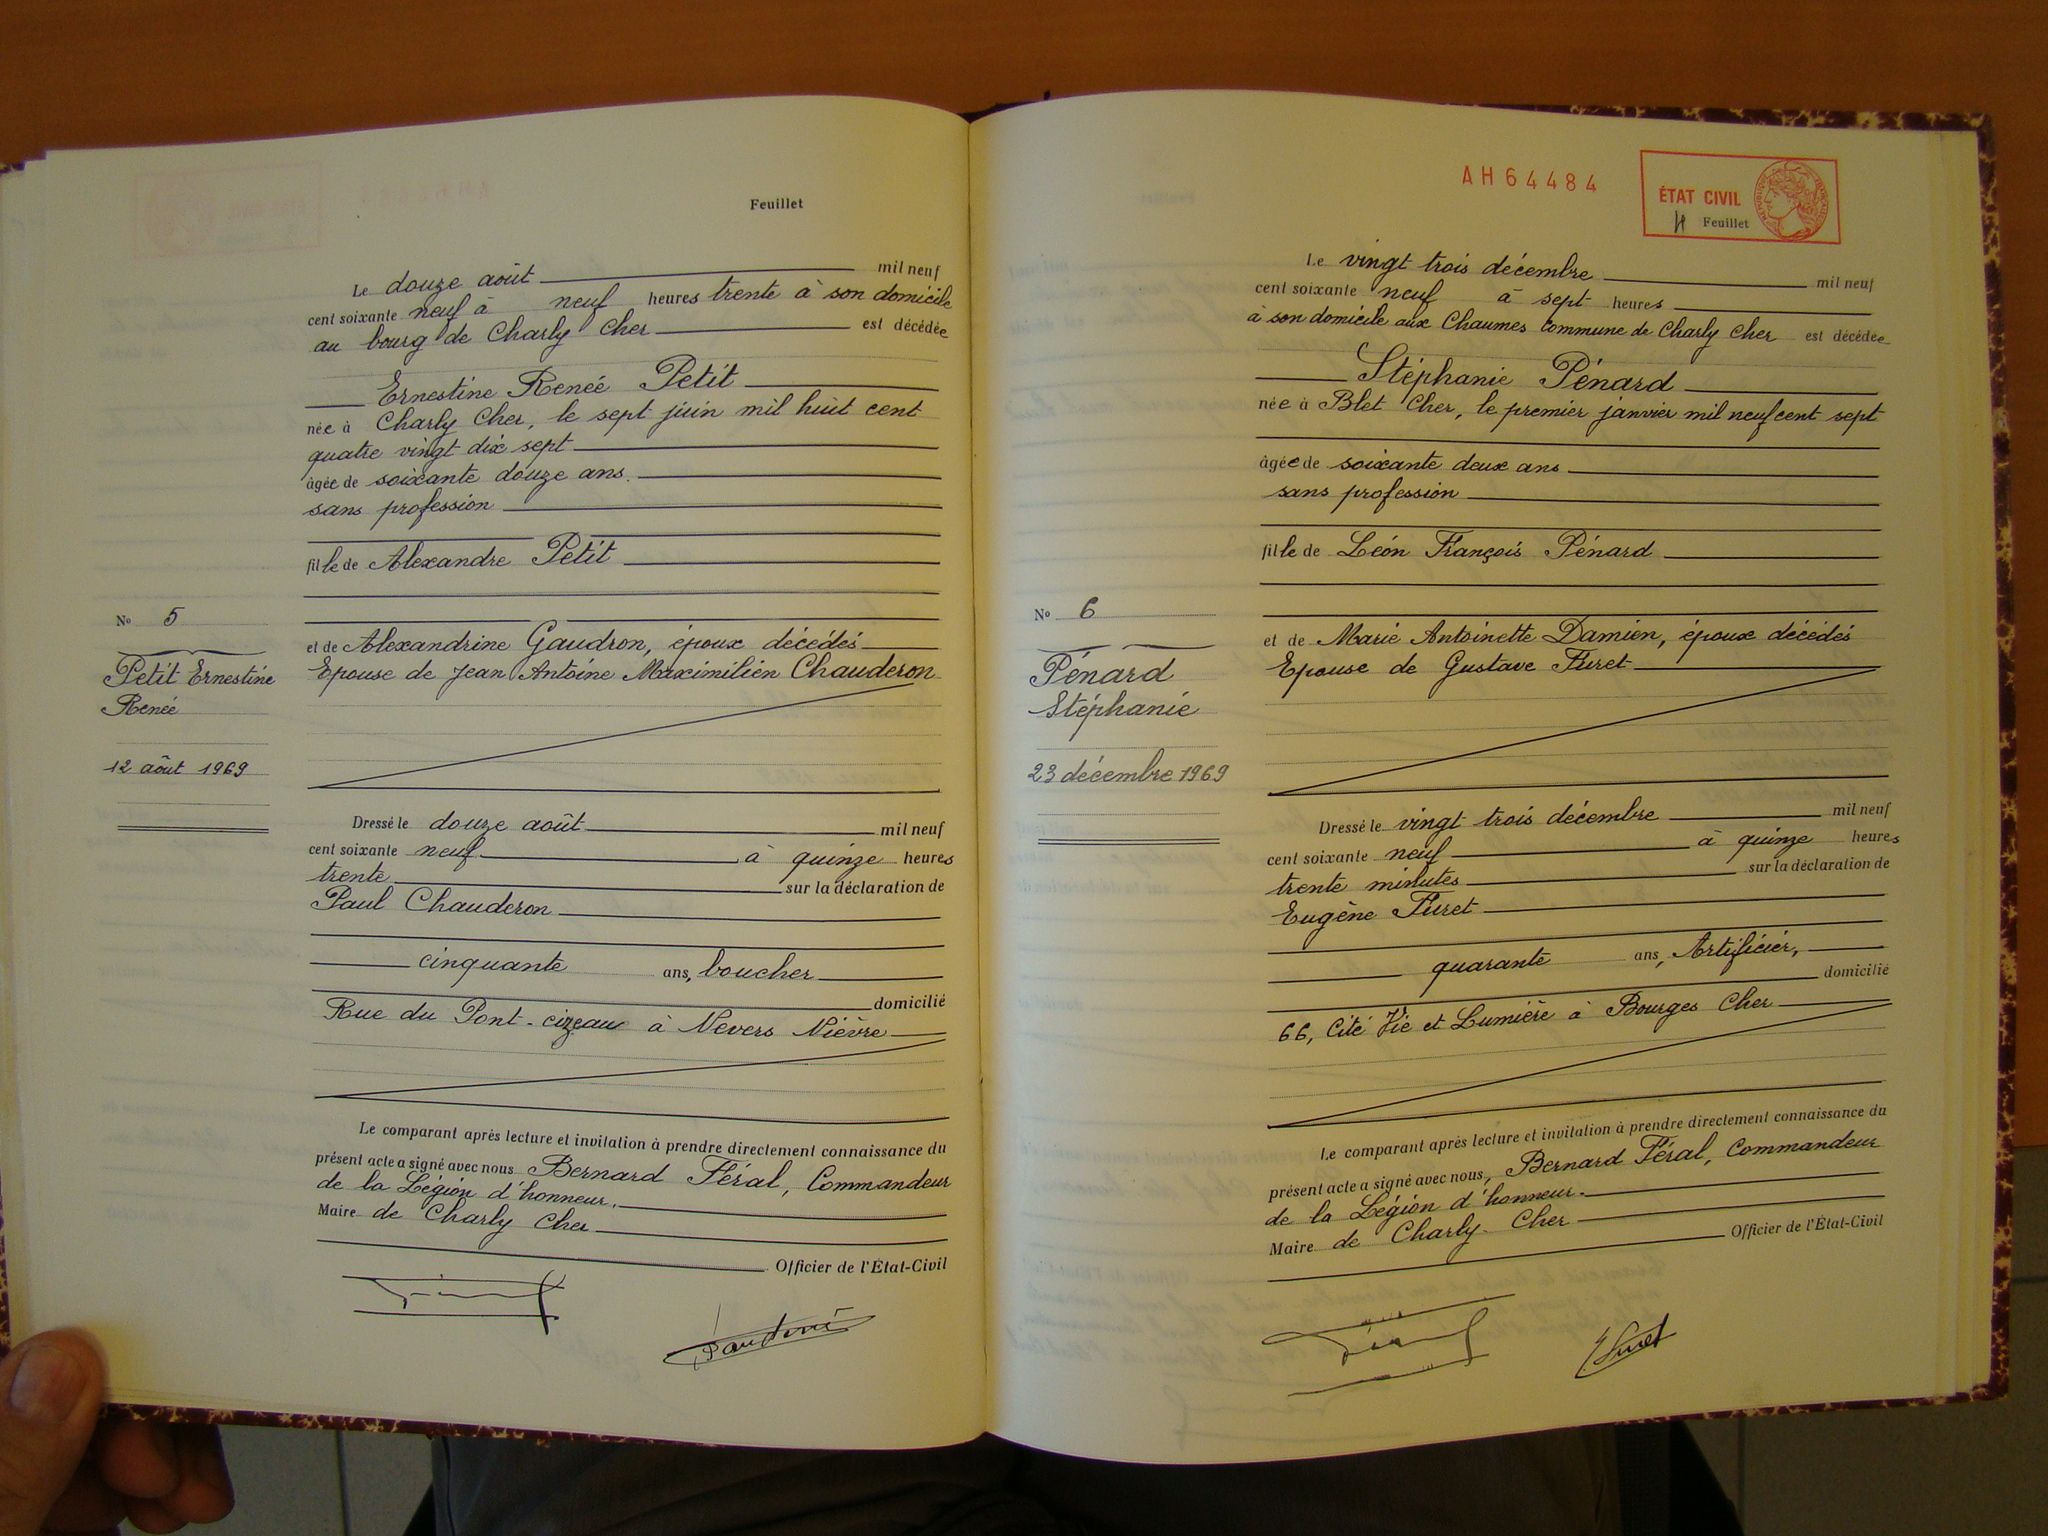 Feuillet
Le douze août mil neuf
cent soixante neuf à neuf heures trente à son domicile
au bourg de Charly Cher est décédée
Ernestine Renée Petit
née à Charly Cher, le sept juin mil huit cent
quatre vingt dix sept
âgée de soixante douze ans.
sans profession
fille de Alexandre Petit
et de Alexandrine Gaudron, époux décédés
Epouse de Jean Antoine Maximilien Chauderon
No 5
Petit Ernestine
Renée
12 août 1969
Dressé le douze août mil neuf
cent soixante neuf à quinze heures
trente sur la déclaration de
Paul Chauderon
cinquante ans, boucher
domicilié
Rue du Pont-cizeau à Nevers Nièvre
Le comparant après lecture et invitation à prendre directement connaissance du
présent acte a signé avec nous Bernard Féral, Commandeur
de la Légion d'honneur.
Maire de Charly Cher
Officier de l'État-Civil
AH64484
ÉTAT CIVIL
4 Feuillet
Le vingt trois décembre mil neuf
cent soixante neuf à sept heures
à son domicile aux Chaumes commune de Charly Cher est décédée
Stéphanie Pénard
née à Blet Cher, le premier janvier mil neuf cent sept
âgée de soixante deux ans
sans profession
fille de Léon François Pénard
et de Marie Antoinette Damien, époux décédés
Epouse de Gustave Furet
No 6
Pénard
Stéphanie
23 décembre 1969
Dressé le vingt trois décembre mil neuf
cent soixante neuf à quinze heures
trente minutes sur la déclaration de
Eugène Furet
quarante ans, Artificier,
domicilié
66, Cité Vie et Lumière à Bourges Cher
Le comparant après lecture et invitation à prendre directement connaissance du
présent acte a signé avec nous, Bernard Féral, Commandeur
de la Légion d'honneur.
Maire de Charly Cher
Officier de l'État-Civil